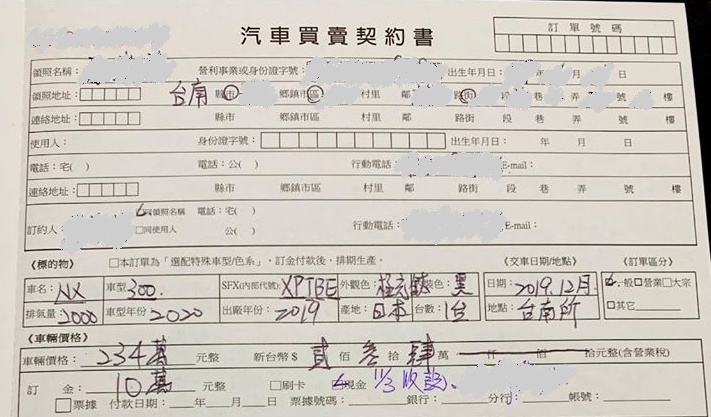 汽車買賣契約書
訂單號碼
領照名稱: 營利事業或身份證字號: 出生年月日: 年 月 日
領照地址: 台南 縣市 鄉鎮市區 村里 鄰 路街 段 巷 弄 號 樓
連絡地址: 縣市 鄉鎮市區 村里 鄰 路街 段 巷 弄 號 樓
使用人: 身份證字號: 出生年月日: 年 月 日
電話:宅( ) 電話:公( ) 行動電話: E-mail:
連絡地址: 縣市 鄉鎮市區 村里 鄰 路街 段 巷 弄 號 樓
訂約人 同領照名稱 電話:宅( ) 行動電話: E-mail:
□同使用人 公( )
《標的物》 □本訂單為「選配特殊車型/色系」,訂金付款後,排期生產。 《交車日期/地點》 《訂單區分》
車名: NX 車型 300 SFX(內部代號): XPTBE 外觀色: 裝色: 黑 日期: 2019.12月 一般□營業□大宗
排氣量: 2000 車型年份: 2020 出廠年份: 2019 產地: 日本 台數: 1台 地點: 台南所 □其它
《車輛價格》
車輛價格: 234萬 元整 新台幣$ 貳 佰 參 拾 肆 萬 仟 佰 拾元整(含營業稅)
訂 金: 10萬 元整 □刷卡 現金 11/3 收款、
□票據 付款日期: 年 月 日 票據號碼: 銀行: 分行: 帳號: